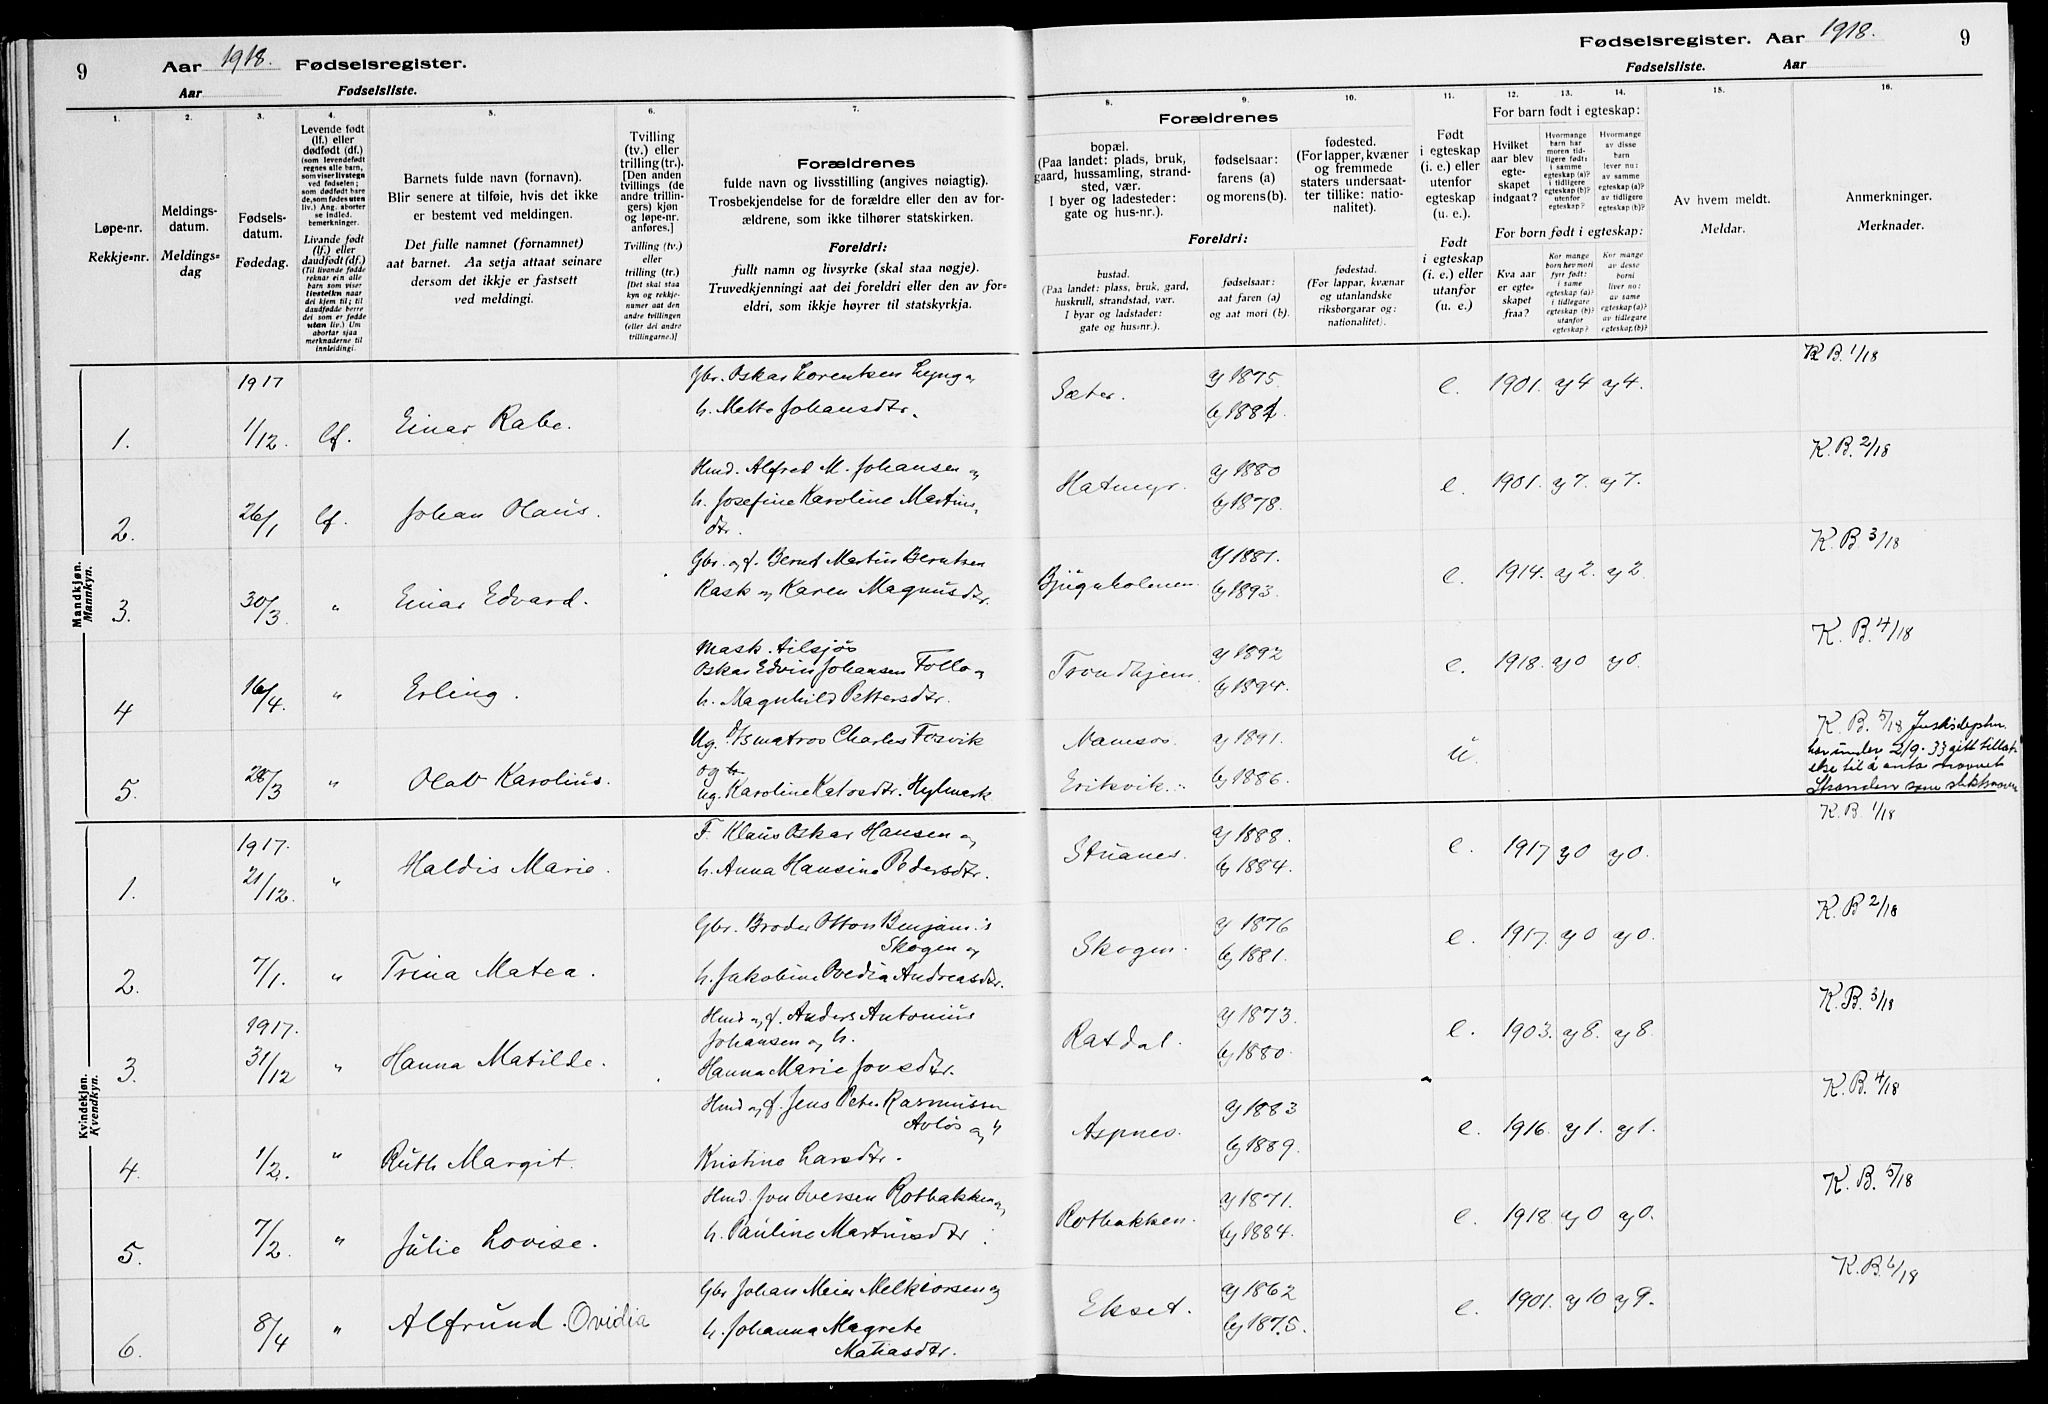 9
Aar 1918. Fødselsregister.
Aar Fødselsliste.
Fødselsregister. Aar 1918. 9
Fødselsliste. Aar
1.
Løpe-nr.
Rekkje-nr.
2.
Meldings-
datum.
Meldings-
dag
3.
Fødsels-
datum.
Fødedag.
4.
Levende født
(lf.) eller
dødfødt (df.)
(som levendefødt
regnes alle barn,
som viser livstegn
ved fødselen;
som dødfødt bare
de, som fødes uten
liv.) Ang. aborter
se indled.
bemerkninger.
Livande født
(lf.) eller
daudfødt (df.)
(Til livande fødde
reknar ein alle
barn som viser
livsteikn naar
dei kjem til; til
daudfødde berre
dei som er fødde
utan liv.) Um
abortar sjaa
merknaderne til
innleidingi.
5.
Barnets fulde navn (fornavn).
Blir senere at tilføie, hvis det ikke
er bestemt ved meldingen.
Det fulle namnet (fornamnet)
aat barnet. Aa setja attaat seinare
dersom det ikkje er fastsett
ved meldingi.
6.
Tvilling
(tv.) eller
trilling (tr.).
[Den anden
tvillings (de
andre trillin-
gers) kjøn
og løpe-nr.
anføres.]
Tvilling (tv.)
eller
trilling (tr.)
[Det skal staa
kyn og rekkje-
numer aat den
andre tvillingen
(eller dei andre
trillingarne.)]
7.
Forældrenes
fulde navn og livsstilling (angives nøiagtig).
Trosbekjendelse for de forældre eller den av for-
ældrene, som ikke tilhører statskirken.
Foreldri:
fullt namn og livsyrke (skal staa nøgje).
Truvedkjenningi aat dei foreldri eller den av for-
eldri, som ikkje høyrer til statskyrkja.
Forældrenes
8.
bopæl.
(Paa landet: plads, bruk,
gaard, hussamling, strand-
sted, vær.
I byer og ladesteder:
gate og hus-nr.).
9.
fødselsaar:
farens (a)
og morens (b).
10.
fødested.
(For lapper, kvæner
og fremmede
staters undersaat-
ter tillike: natio-
nalitet).
Foreldri:
bustad.
(Paa landet: plass, bruk, gard,
huskrull, strandstad, vær.
I byar og ladstader:
gate og hus-nr.).
fødselsaar:
aat faren (a)
og aat mori (b).
fødestad.
(For lappar, kvænar
og utanlandske
riksborgarar og:
nationalitet).
11.
Født
i egteskap
(i. e.) eller
utenfor
egteskap
(u. e.).
Født
i egteskap
(i. e.) eller
utanfor
(u. e.)
12. 13. 14.
For barn født i egteskap:
Hvilket
aar blev
egte-
skapet
indgaat?
Hvormange
barn har
moren tid-
ligere født:
i samme
egteskap (a)?
i tidligere
egteskap (b)?
utenfor
egteskap?
Hvormange
av disse
barn
lever nu:
av samme
egteskap (a)?
av tidligere
egteskap (b)?
For born født i egteskap:
Kva aar
er egte-
skapet
fraa?
Kor mange
born hev mori
fyrr født:
i same
egteskap (a)?
i tidlegare
egteskap (b)?
utanfor
egteskap?
Kor mange
av desse
borni
liver no:
av same
egteskap (a)?
av tidlegare
egteskap (b)?
15.
Av hvem meldt.
Meldar.
16.
Anmerkninger.
Merknader.
Mandkjøn.
Mannkyn.
1. 1917 1/12. lf. Einar Rabe.
Gbr. Oskar Lorentsen Lyng og
h. Mette Johansdtr.
Sæter. a) 1875. b) 1882 e. 1901. a) 4 a) 4. K.B. 1/18
2. 26/1 lf. Johan Olaus.
Hmd. Alfred M. Johansen og
h. Josefine Karoline Martins-
dtr.
Hatmyr. a) 1880 b) 1878. e. 1901. a) 7. a) 7. K.B. 2/18
3. 30/3 " Einar Edvard.
Gbr. og f. Bernt Martin Berntsen
Rask og Karen Magnusdtr.
Bjugnholmen. a) 1881. b) 1893. e. 1914. a) 2. a) 2. K.B. 3/18
4 16/4. " Erling.
Mask. tilsjøs
Oskar Edvin Johansen Follo og
h. Magnhild Pettersdtr.
Trondhjem. a) 1892 b) 1894. e. 1918. a) 0 a) 0. K.B. 4/18
5. 28/3 " Olav Karolius.
Ug. matros Charles Fosvik
og
ug. Karoline Katosdtr. Hylmark
Namsos. Eriksvik. a) 1891. b) 1886. u. K.B. 5/18 Justisdeptm.
har under 2/9-33 gitt tillat-
else til å anta navnet
Stranden som slektsnavn
Kvindekjøn.
Kvendkyn.
1. 1917. 21/12. " Haldis Marie.
F. Klaus Oskar Hansen og
h. Anna Hansine Pedersdtr.
Stuanes. a) 1888. b) 1884. e. 1917 a) 0 a) 0. K.B. 1/18
2. 7/1. " Trina Matea.
Gbr. Broder Otton Benjamin's
Skogen og
h. Jakobine Ovedia Andreasdtr.
Skogen. a) 1876 b) 1881. e. 1917. a) 0 a) 0. K.B 2/18
3. 1917. 31/12 " Hanna Matilde.
Hmd og f. Anders Antonius
Johansen og h.
Hanna Marie Jonsdtr.
Raxdal. a) 1873. b) 1880. e. 1903. a) 8. a) 8. K.B. 3/18
4. 1/2. " Ruth Margit.
Hmd og f. Jens Peter Rasmussen
Avløs og h
Kristine Larsdtr.
Aspnes. a) 1883 b) 1889. e. 1916. a) 1. a) 1. K.B. 4/18
5. 7/2. " Julie Lovise.
Hmd. Jon Iversen Rotbakken og
h. Pauline Martinsdtr
Rotbakken. a) 1871. b) 1884. e. 1918 a) 0 a) 0. K.B. 5/18
6. 8/4 " Alfrund Ovidia
Gbr Johan Meier Melkiorsen og
h. Johanna Magrete
Matiasdtr.
Ekset. a) 1862 b) 1875. e. 1901. a) 10 a) 9. K.B. 6/18